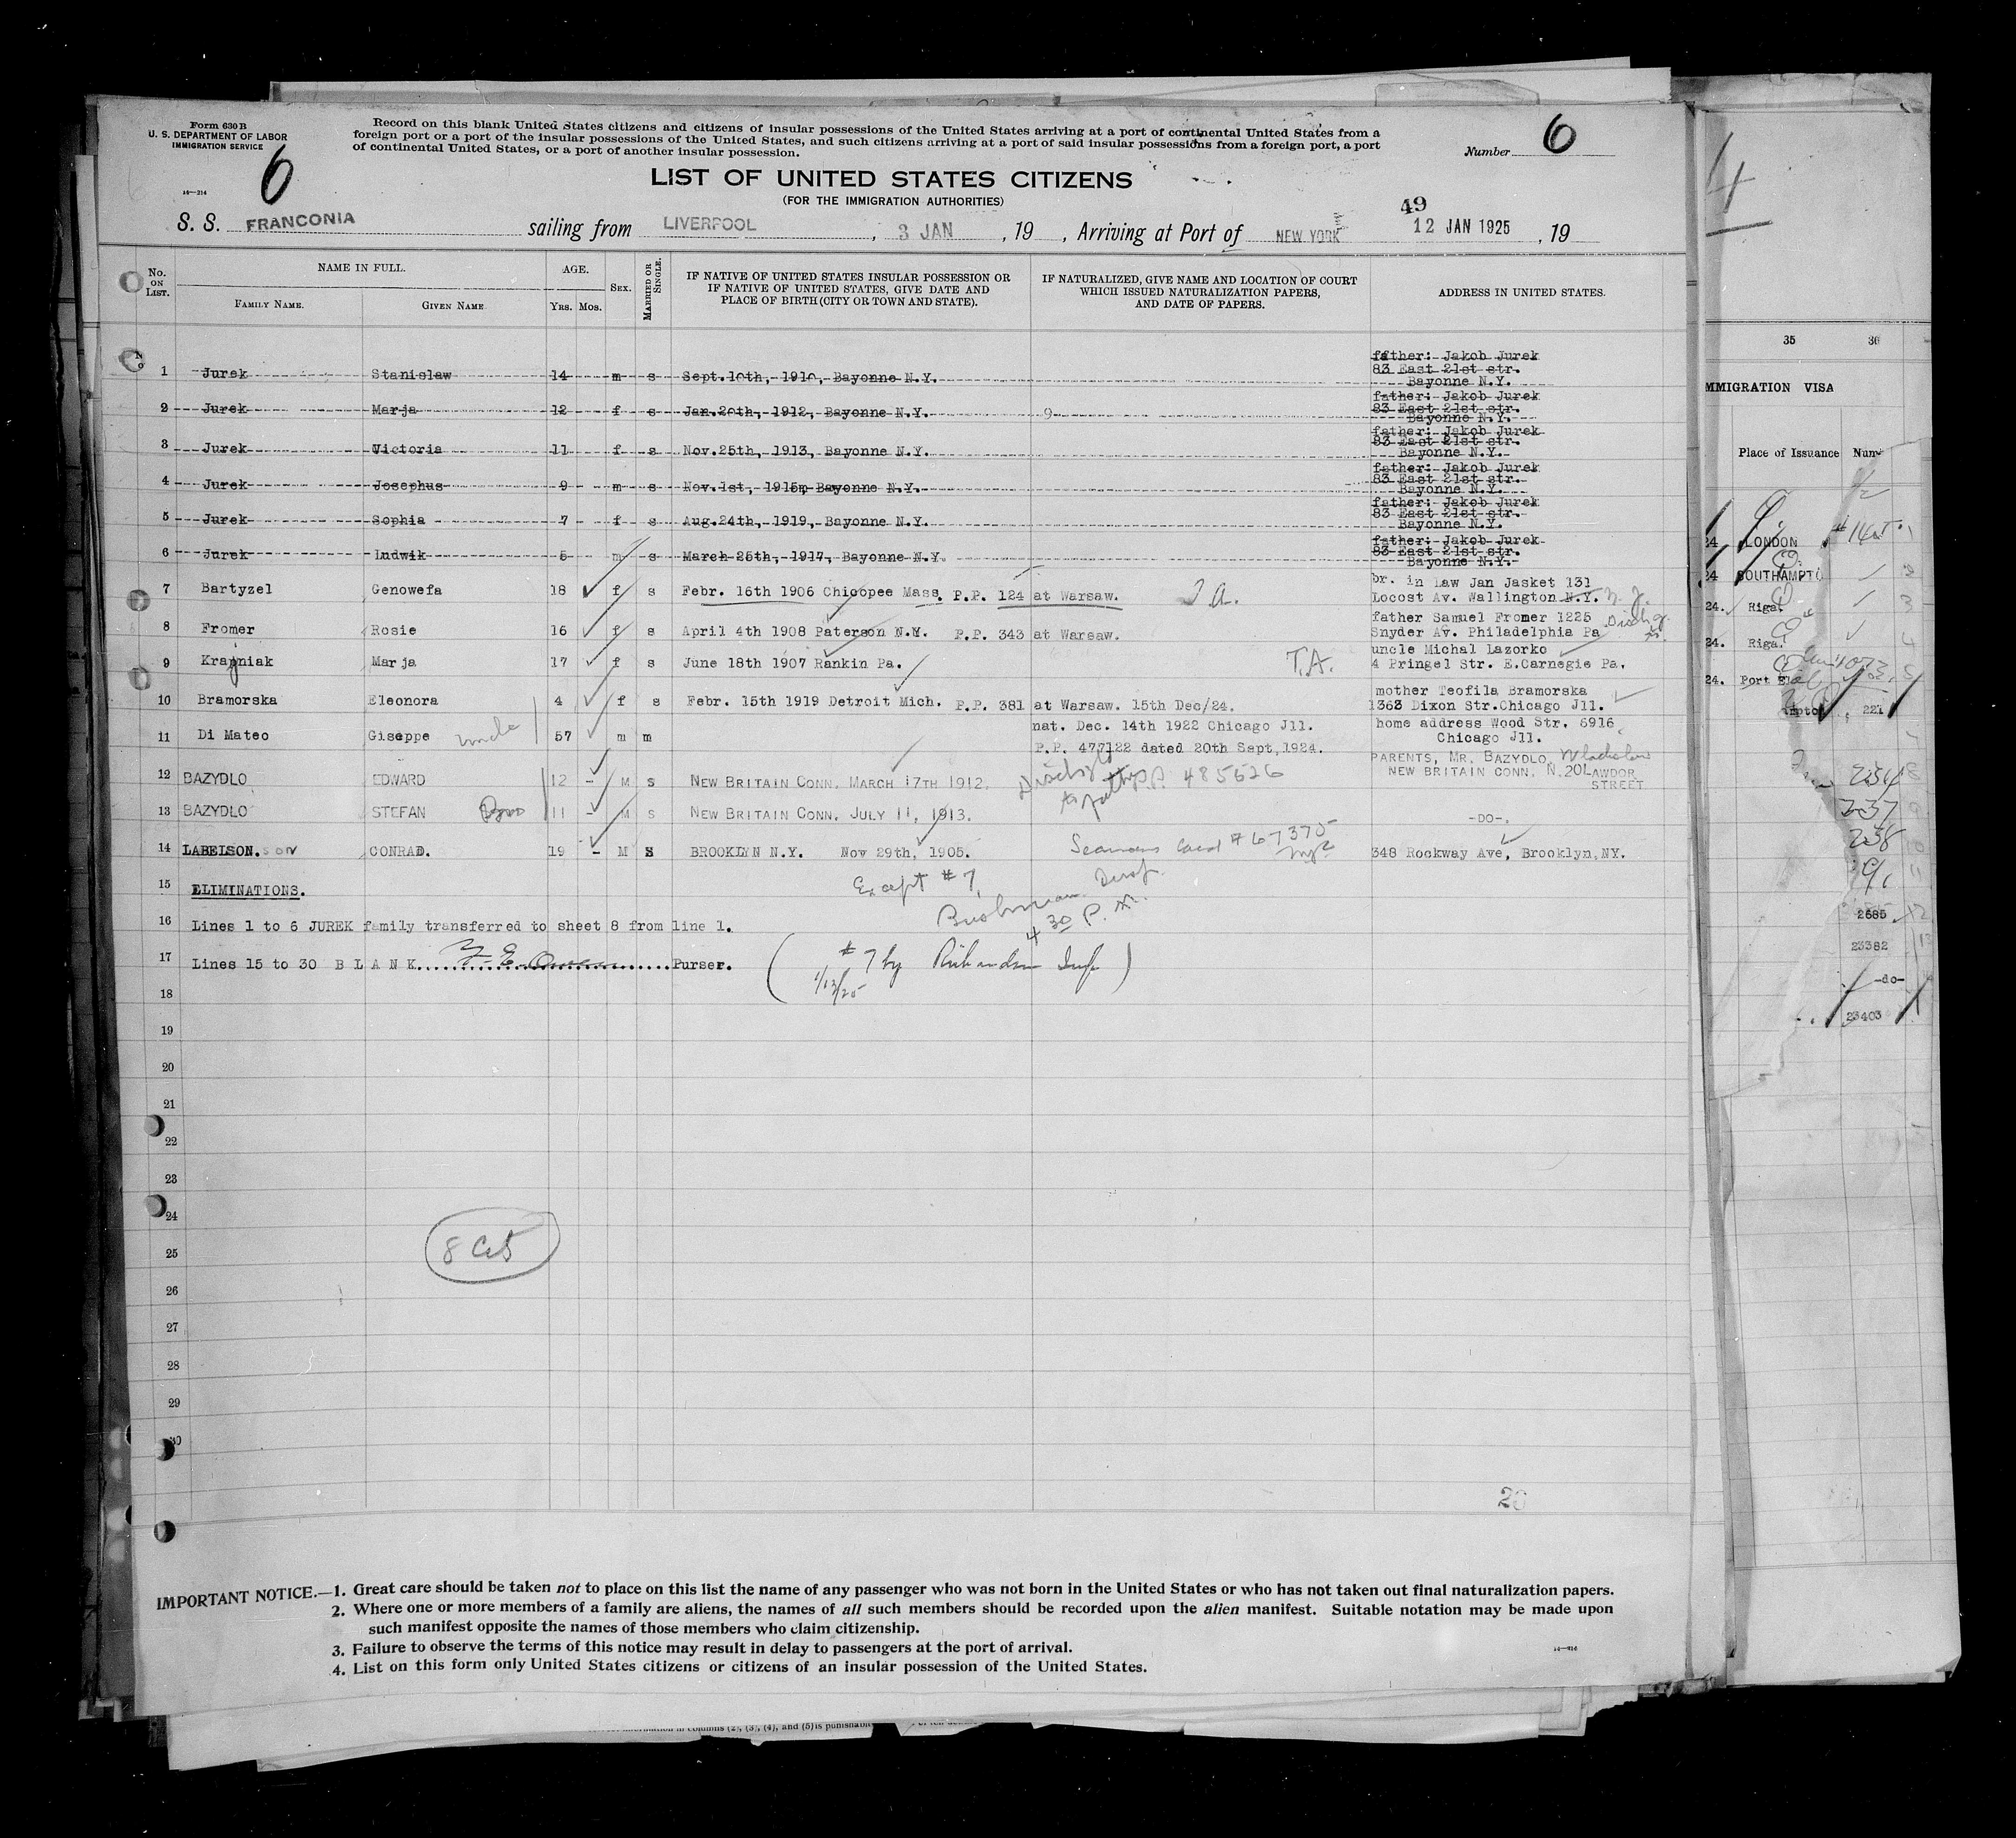 Form 630 B
U. S. DEPARTMENT OF LABOR
IMMIGRATION SERVICE
14—214
6
Record on this blank United States citizens and citizens of insular possessions of the United States arriving at a port of continental United States from a
foreign port or a port of the insular possessions of the United States, and such citizens arriving at a port of said insular possessions from a foreign port, a port
of continental United States, or a port of another insular possession.
Number 6
LIST OF UNITED STATES CITIZENS
(FOR THE IMMIGRATION AUTHORITIES)
49
S. S. FRANCONIA sailing from LIVERPOOL, 3 JAN, 19 , Arriving at Port of NEW YORK 12 JAN 1925, 19
No. ON LIST.
NAME IN FULL.
FAMILY NAME.
GIVEN NAME
AGE.
Yrs. Mos.
SEX.
MARRIED OR SINGLE.
IF NATIVE OF UNITED STATES INSULAR POSSESSION OR
IF NATIVE OF UNITED STATES, GIVE DATE AND
PLACE OF BIRTH (CITY OR TOWN AND STATE).
IF NATURALIZED, GIVE NAME AND LOCATION OF COURT
WHICH ISSUED NATURALIZATION PAPERS,
AND DATE OF PAPERS.
ADDRESS IN UNITED STATES.
1 Jurek Stanislaw 14 m s Sept.10th, 1910, Bayonne N.Y. father: Jakob Jurek
83 East 21st str.
Bayonne N.Y.
2 Jurek Marja 12 f s Jan.20th, 1912, Bayonne N.Y. 9 father: Jakob Jurek
83 East 21st str.
Bayonne N.Y.
3 Jurek Victoria 11 f s Nov.25th, 1913, Bayonne N.Y. father: Jakob Jurek
83 East 21st str.
Bayonne N.Y.
4 Jurek Josephus 9 m s Nov.1st, 1915m Bayonne N.Y. father: Jakob Jurek
83 East 21st str.
Bayonne N.Y.
5 Jurek Sophia 7 f s Aug.24th, 1919, Bayonne N.Y. father: Jakob Jurek
83 East 21st str.
Bayonne N.Y.
6 Jurek Ludwik 5 m s March 25th, 1917, Bayonne N.Y. father: Jakob Jurek
83 East 21st str.
Bayonne N.Y.
7 Bartyzel Genowefa 18 f s Febr. 16th 1906 Chicopee Mass. P.P. 124 at Warsaw. br. in Law Jan Jasket 131
Locost Av. Wallington N.Y. N. J.
8 Fromer Rosie 16 f s April 4th 1908 Paterson N.Y. P.P. 343 at Warsaw. father Samuel Fromer 1225
Snyder Av. Philadelphia Pa
9 Krajniak Marja 17 f s June 18th 1907 Rankin Pa. T.A. uncle Michal Lazorko
4 Pringel Str. E.Carnegie Pa.
10 Bramorska Eleonora 4 f s Febr. 15th 1919 Detroit Mich. P.P. 381 at Warsaw. 15th Dec/24. mother Teofila Bramorska
1363 Dixon Str.Chicago Jll.
11 Di Mateo Giseppe uncle 57 m m nat. Dec. 14th 1922 Chicago Jll.
P.P. 477122 dated 20th Sept,1924. home address Wood Str. 6916
Chicago Jll.
12 BAZYDLO EDWARD 12 - M S NEW BRITAIN CONN. MARCH 17TH 1912. P.P. 485626 PARENTS, MR. BAZYDLO, Wladislaw
NEW BRITAIN CONN. N.20LAWDOR
STREET
13 BAZYDLO STEFAN 11 - M S NEW BRITAIN CONN. JULY 11, 1913. -DO-.
14 LABELSON.son CONRAD. 19 - M S BROOKLYN N.Y. Nov 29th, 1905. Seamans Card # 67375 348 Rockway Ave, Brooklyn,NY.
Except # 7,
15 ELIMINATIONS.
4 30 P. M.
16 Lines 1 to 6 JUREK family transferred to sheet 8 from line 1.
17 Lines 15 to 30 B L A N K. Purser.
( # 7 by Richardson Insp )
1/12/25
18
19
20
21
22
23
24
25
26
27
28
29
30
IMPORTANT NOTICE.—1. Great care should be taken not to place on this list the name of any passenger who was not born in the United States or who has not taken out final naturalization papers.
2. Where one or more members of a family are aliens, the names of all such members should be recorded upon the alien manifest. Suitable notation may be made upon
such manifest opposite the names of those members who claim citizenship.
3. Failure to observe the terms of this notice may result in delay to passengers at the port of arrival.
4. List on this form only United States citizens or citizens of an insular possession of the United States.
4
35 36
MMIGRATION VISA
Place of Issuance
24 LONDON
24 SOUTHAMPTO
24. Riga.
24. Riga.
24. Port
221
234
237
238
2685
23382
-do-
23403